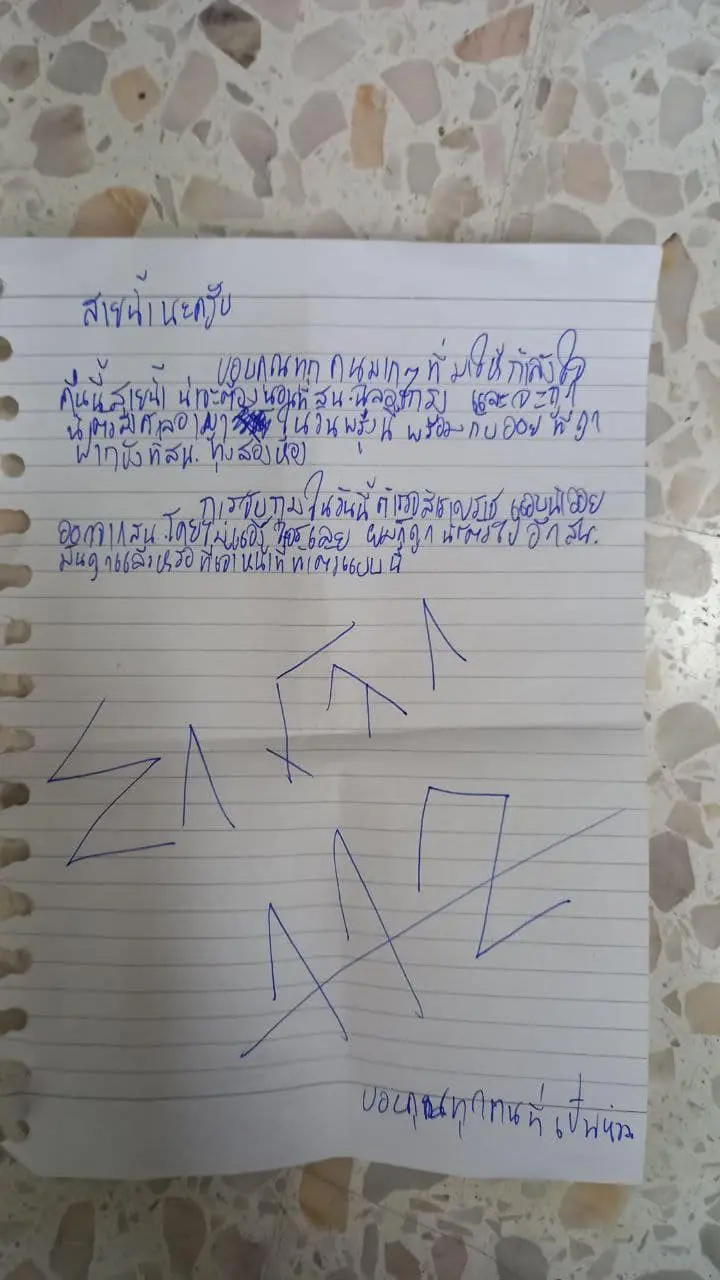 สายน้ำนะครับ
ขอบคุณทุกคนมากๆที่มาให้กำลังใจ
คืนนี้สายน้ำน่าจะต้องนอนที่สน.ฉลองกรุง และจะถูก
นำตัวส่งศาลอาญา ในวันพรุ่งนี้ พร้อมกับออย ที่ถูก
ฝากขังที่สน. ทุ่งสองห้อง
การจับกุมในวันนี้ตำรวจ แอบนำออย
ออกจากสน.โดยไม่แจ้งใครเลย ผมก็ถูกนำตัวไปอีกสน.
มันถูกแล้วหรอที่เจ้าหน้าที่ทำตัวแบบนี้
ขอบคุณทุกคนที่เป็นห่วง